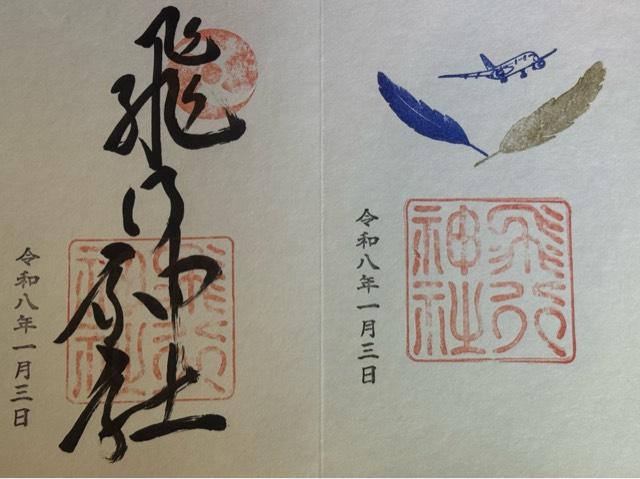 飛行神社
令和八年一月三日
飛行神社
飛行神社
令和八年一月三日